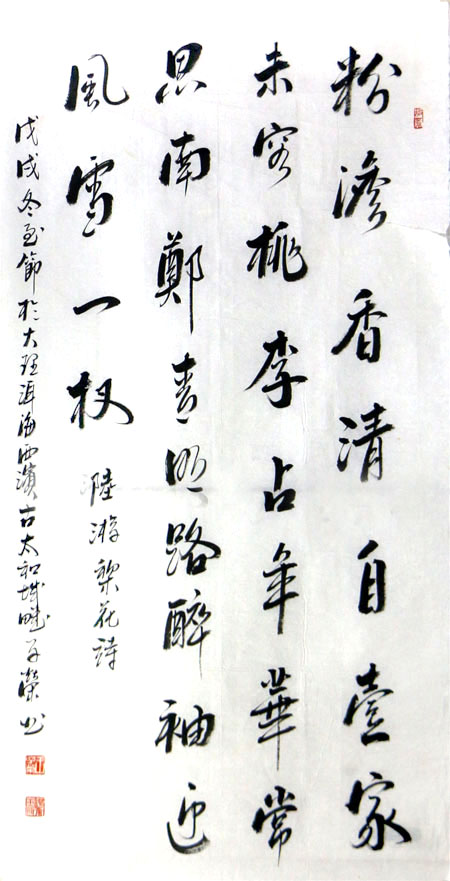 粉澹香清自壹家
未容桃李占年華常
思南鄭青明路醉袖迎
風雪一杈
陸游棃花詩
戊戌冬至節於大理洱海西濱古太和城畔榮书